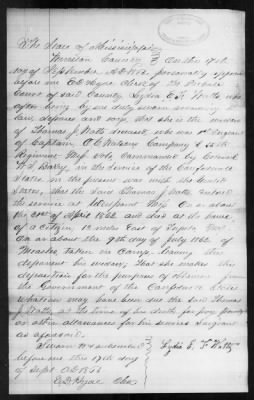 The State of Mississippi
Harrison County } On the 17th
day of September AD 1863, personally appeared
before me C D Hyde Clerk of the Probate
Court of said County Lydia E. F. Watts, who
after being by me duly sworn according to
law, deposes and says, that she is the widow
of Thomas J Watts deceased, who was 1st Sergeant
of Captain Company
Regiment Miss Vols Commanded by Colonel
in the service of the Confederate
States in the present war with the United
States, that the said Thomas J Watts entered
the service at Miss On or about
the of April 1862 and died at the house
of a Citizen, 12 miles East of Tupelo
Co on or about the 9th day of July 1862 of
Measles taken in Camp leaving this
deponent his widow, that she makes this
deposition for the purpose of obtaining from
the Government of the Confederate States
whatever may have been due the said Thomas
J Watts at the time of his death for pay, bounty
or other allowances for his services Sergeant
as aforesaid.
Sworn to & subscribed
before me the 17th day
of Sept AD 1863
Lydia E. F. Watts